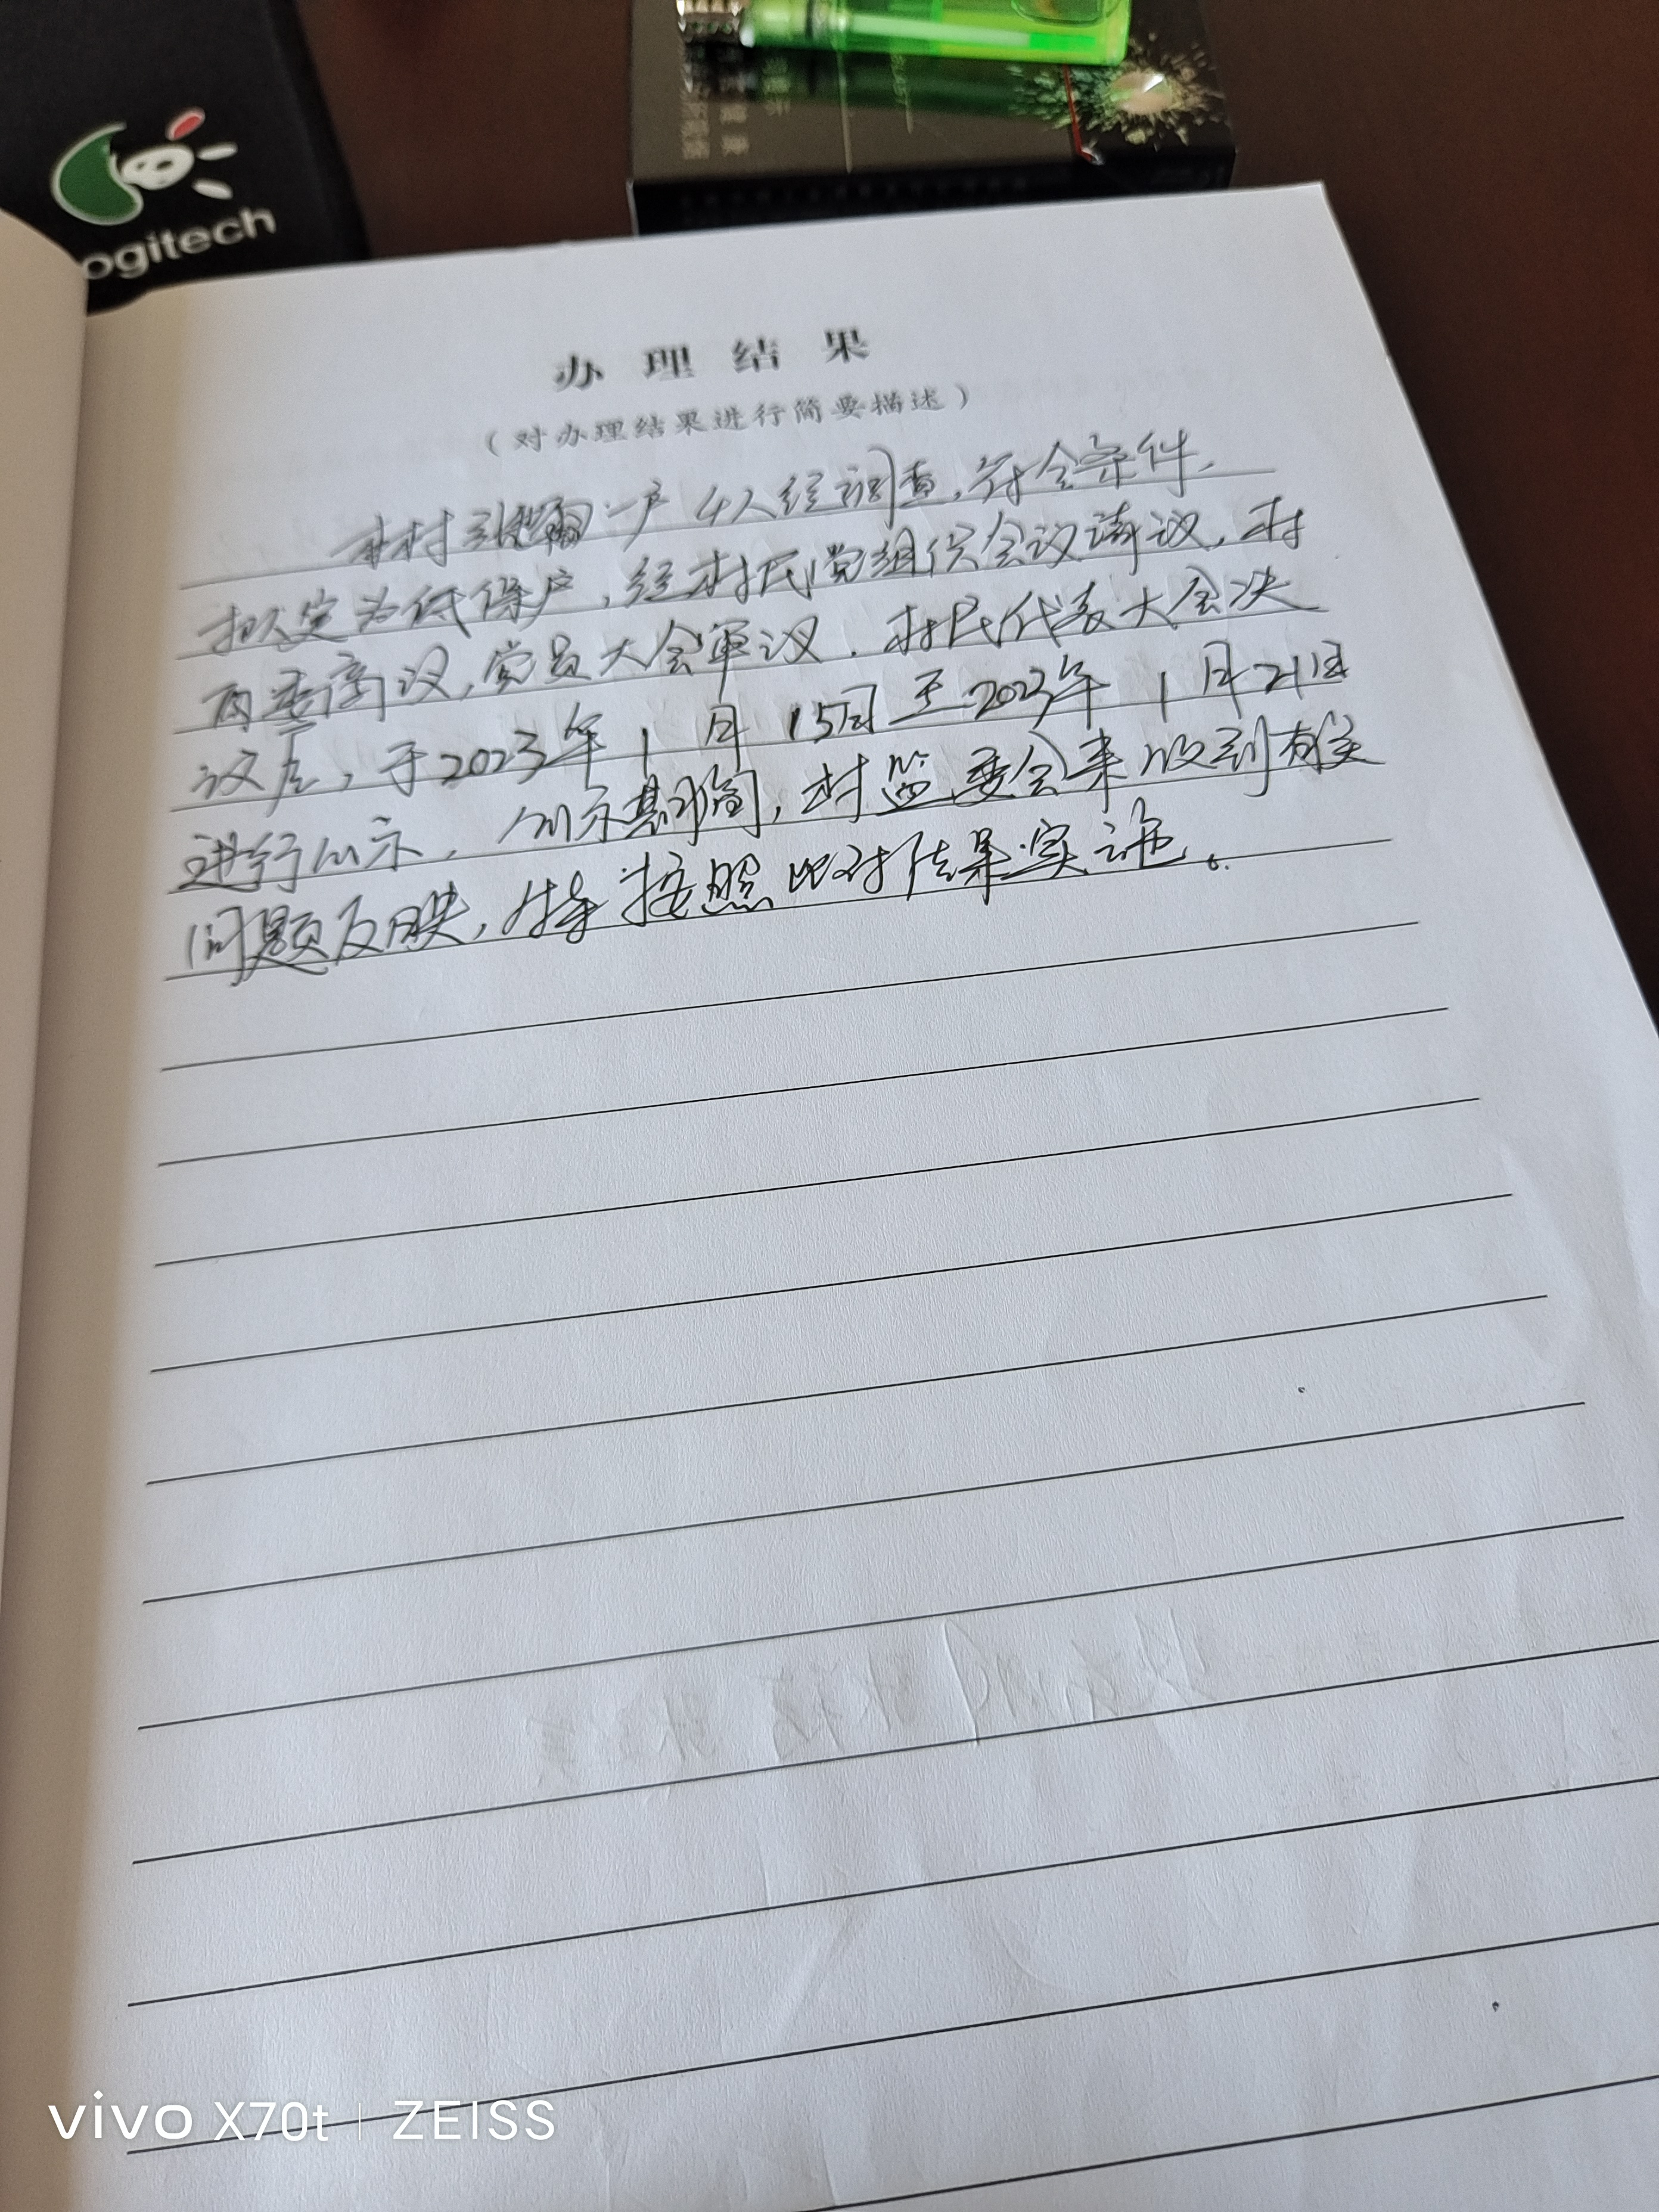 ogitech
办理结果
（对办理结果进行简要描述）
本村 一户4人经调查，符合条件，
拟定为低保户，经村民党组织会议请议，村
两委商议，党员大会审议．村民代表大会决
议后，于2023年1月15日至2023年1月21日
进行公示，公示期间，村监委会未收到有关
问题反映，特按照比对结果实施。
vivo X70t | ZEISS